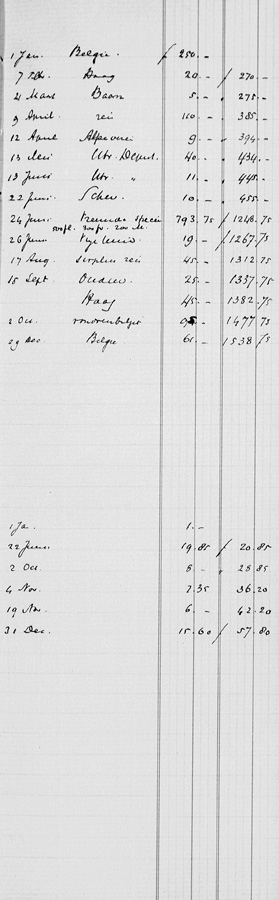 1 Jan. Belgie. ƒ 250.-
7 Febr. Haag 20.- ƒ 270.-
21 Maart Baarn 5.- " 275.-
9 April. reis 110.- " 385.-
12 April 9.- " 394.-
13 Mei Utr. 40.- " 434.-
13 Juni Utr. " 11.- " 445.-
22 Juni Schev. 10.- " 455.-
24 Juni 793.75 ƒ 1248.75
26 Juni 19.- ƒ 1267.75
17 Aug. surplus reis 45.- " 1312.75
15 Sept 25.- " 1337.75
Haag 45.- " 1382.75
2 Oct. 95.- " 1477.75
29 Dec Belgie 61.- " 1538.75
1 Ja. 1.-
22 Juni 19.85 ƒ 20.85
2 Oct. 8.- " 28.85
4 Nov. 7.35 36.20
19 Nov. 6.- " 42.20
31 Dec. 15.60 ƒ 57.80